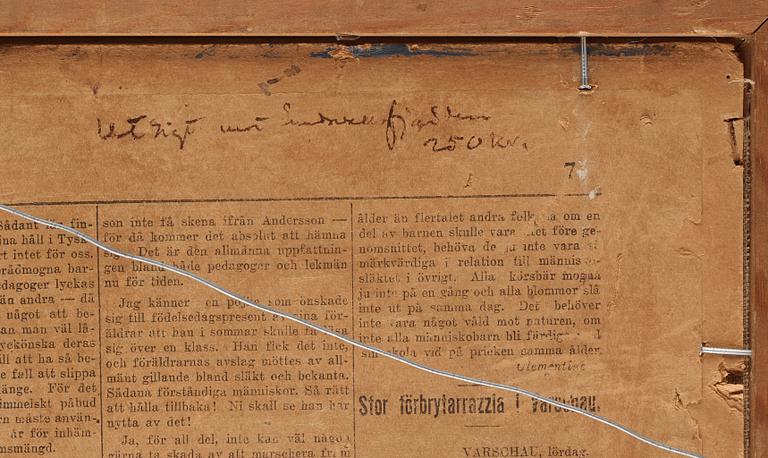 Utsigt mot
250 kr.
7
Sådant
ina håll i Tysk
rt intet för oss.
rådmogna bar-
dagoger lyckas
än andra — då
något att be-
an man väl lå-
yckönska deras
ill att ha så be-
e fall att slippa
änge. För det
immelskt påbud
rn måste använ-
år för inhäm-
msmängd.
son inte få skena ifrån Andersson —
för då kommer det absolut att hämna
sig. Det är den allmänna uppfattnin-
gen bland både pedagoger och lekmän
nu för tiden.
Jag känner en pojke som önskade
sig till födelsedagspresent av sina för-
äldrar att han i sommar skulle få läsa
sig över en klass. Han fick det inte,
och föräldrarnas avslag möttes av all-
mänt gillande bland släkt och bekanta.
Sådana förståndiga människor. Så rätt
att hålla tillbaka! Ni skall se han har
nytta av det!
Ja, för all del, inte kan väl någon
gärna ta skada av att marschera fram
ålder än flertalet andra folk, om en
del av barnen skulle vara det före ge-
nomsnittet, behöva de ju inte vara
märkvärdiga i relation till männis
släktet i övrigt. Alla körsbär mogna
ju inte på en gång och alla blommor slå
inte ut på samma dag. Det behöver
inte vara något våld mot naturen, om
inte alla människobarn bli färdiga
sin skola vid på pricken samma ålder.
Clementine
Stor förbrytarrazzia i Varschau.
VARSCHAU, lördag.